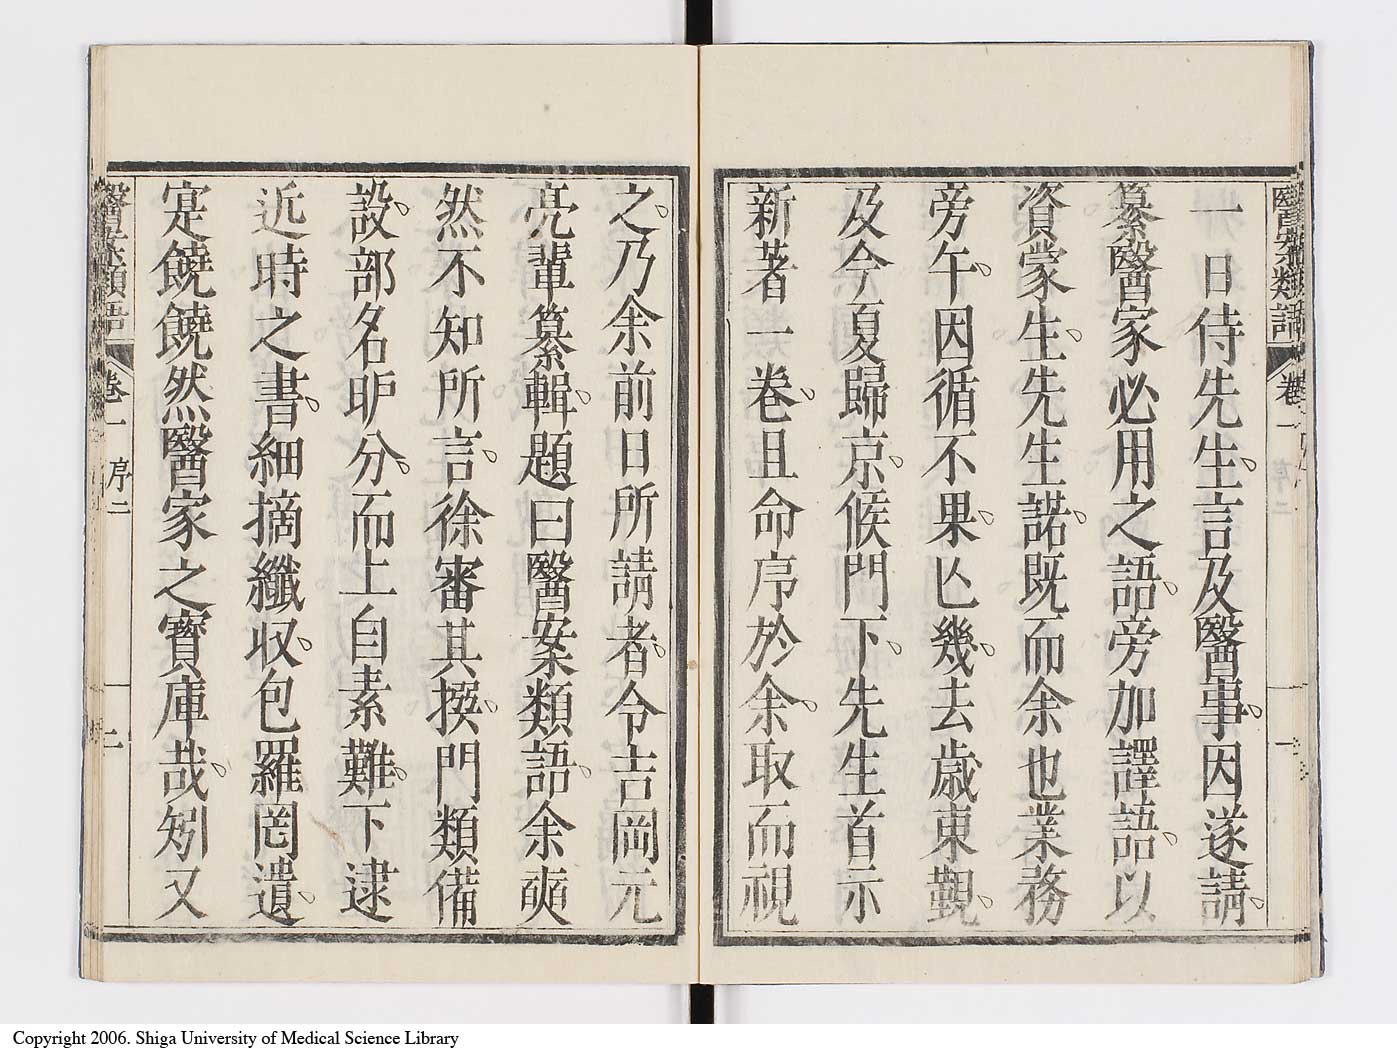 醫案類語 卷一 序二 一
一日侍先生言及醫事因遂請
纂醫家必用之語旁加譯語以
資蒙生先生諾既而余也業務
旁午因循不果亾幾去歲東覲
及今夏歸京候門下先生首示
新著一卷且命序於余取而視
之乃余前日所請者令吉岡元
亮輩纂輯題曰醫案類語余奭
然不知所言徐審其撰門類備
設部名昈分而上自素難下逮
近時之書細摘纖収包羅罔遺
寔饒饒然醫家之寶庫哉矧又
醫案類語 卷一 序二 一 二
Copyright 2006. Shiga University of Medical Science Library